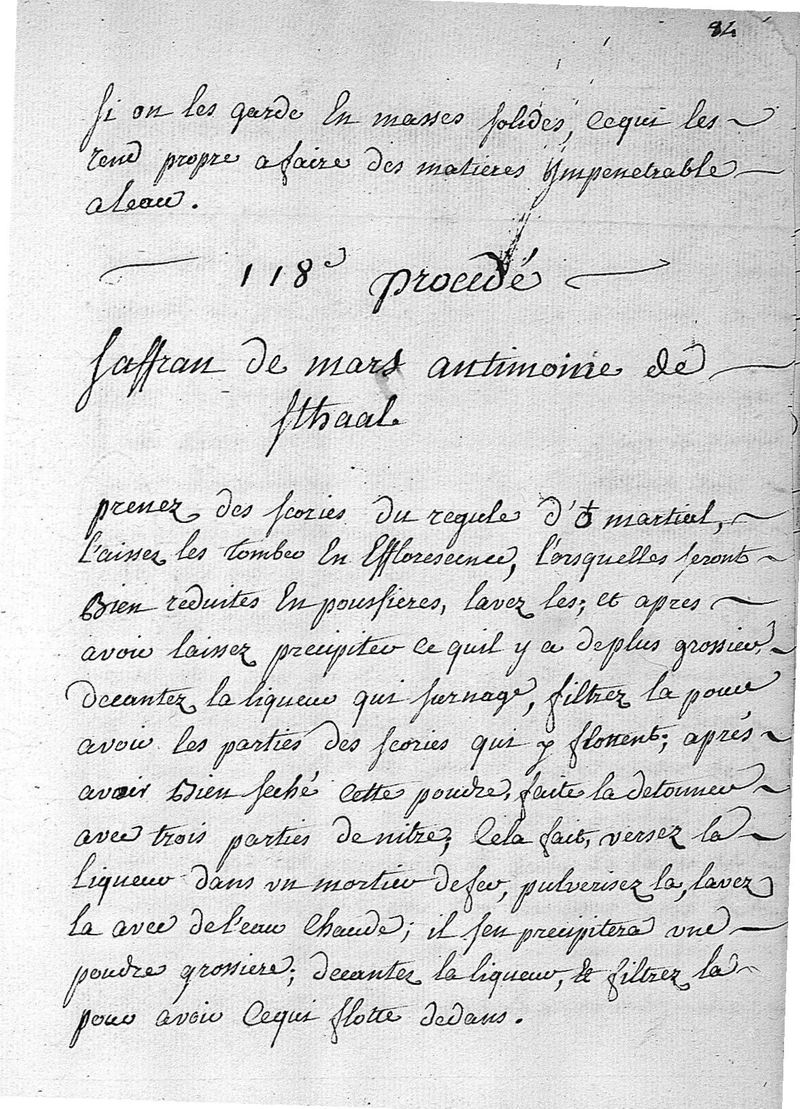 84
si on les garde En masses solides, cequi les
rend propre a faire des matieres Impenetrable
aleau.
118e procedé
saffran de mars antimoine de
sthaal
prenez des scories du regule d'♁ martial,
l'aissez les tomber En Efflorescence, lorsquelles seront
Bien reduites En poussieres, lavez les; et apres
avoir laissez precipiter ce quil y a deplus grossier,
decantez la liqueur qui surnage, filtrez la pour
avoir les parties des scories qui y flottent; aprés
avoir Bien seché cette poudre, faite la detonner
avec trois parties denitre; Cela fait, versez la
liqueur dans un mortier defer, pulverisez la, lavez
la avec del'eau Chaude; il sen precipitera une
poudre grossiere; decantez la liqueur, & filtrez la
pour avoir Cequi flotte dedans.